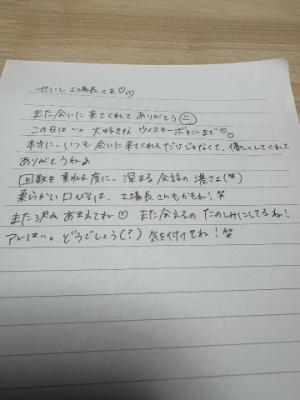 せいし工場長さま♡♡
また会いに来てくれてありがとう
この日は…。大好きなウィスキーボンボンまで♡。
本当に、いつも会いに来てくれるだけじゃなくて、優しくしてくれて
ありがとうね♪
回数を重ねる度に、深まる会話の濃さよ(笑)
柔らかい口ひるは、工場長さんもかもね!笑
また沢山あまえてね♡ また会えるのたのしみにしてるね!
アレは…。どうでしょう(?) 気を付けてね!笑